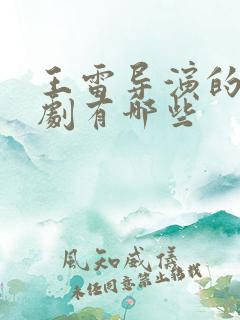 王雷导演的
劇有哪些
風知威儀
未经同意禁止转载